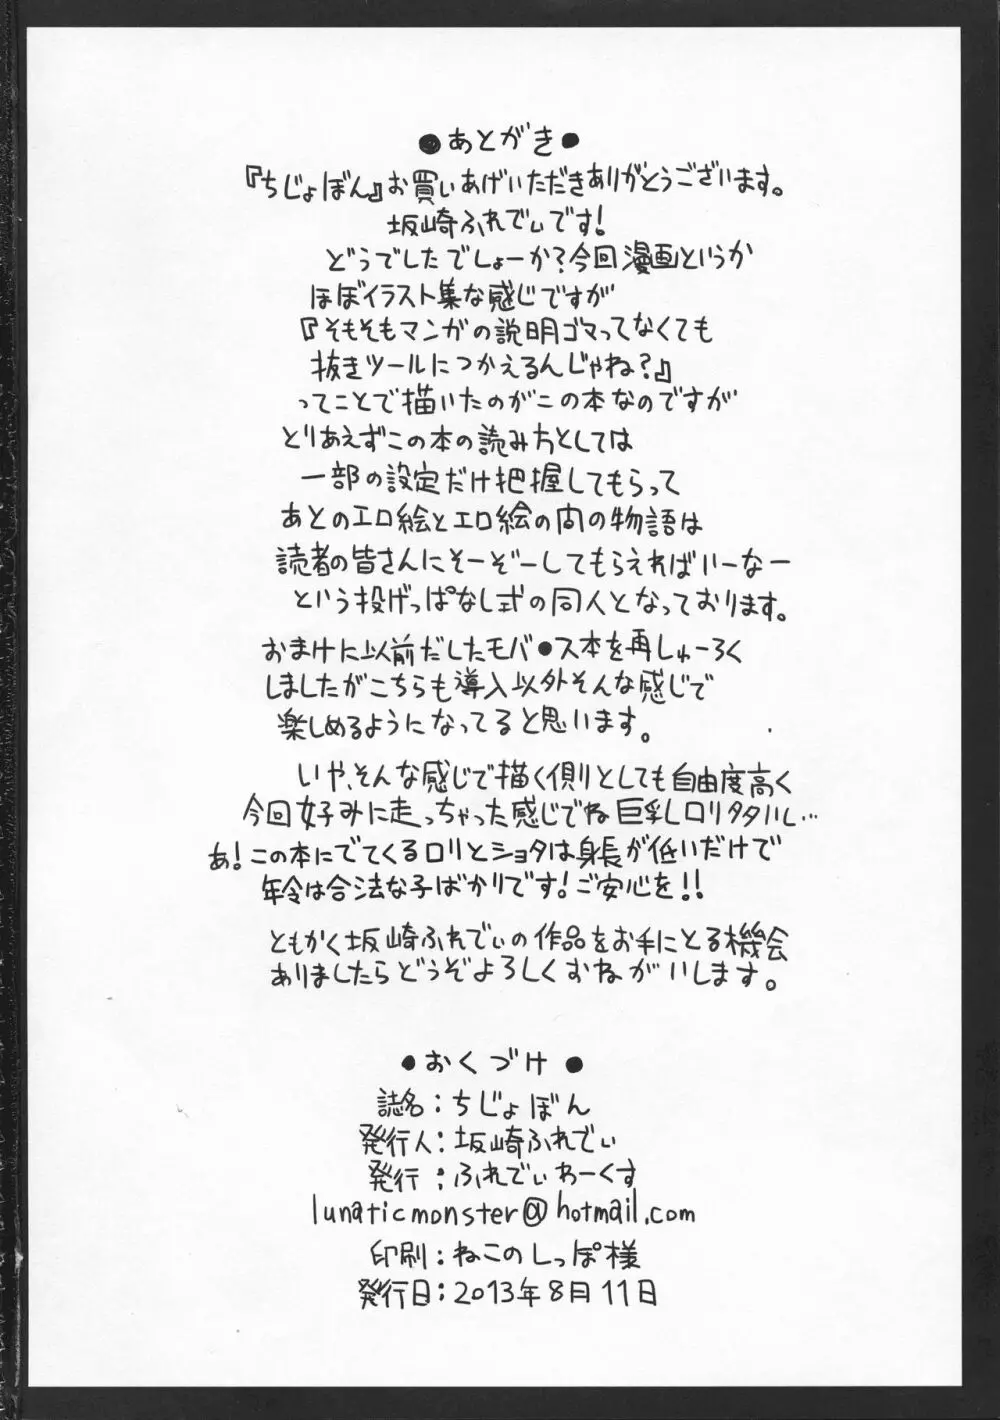 ●あとがき●
『ちじょぼん』お買いあげいただきありがとうございます。
坂崎ふれでぃです!
どうでしたでしょーか?今回漫画というか
ほぼイラスト集な感じですが
『そもそもマンガの説明ゴマってなくても
抜きツールにつかえるんじゃね?』
ってことで描いたのがこの本なのですが
とりあえずこの本の読み方としては
一部の設定だけ把握してもらって
あとのエロ絵とエロ絵の間の物語は
読者の皆さんにそーぞーしてもらえればいーなー
という投げっぱなし式の同人となっております。
おまけに以前だしたモバ●ス本を再しゅーろく
しましたがこちらも導入以外そんな感じで
楽しめるようになってると思います。
いや、そんな感じで描く側りとしても自由度高く
今回好みに走っちゃった感じでね巨乳ロリタタいし…
あ!この本にでてくるロリとショタは身長が低いだけで
年令は合法な子ばかりです!ご安心を!!
ともかく坂崎ふれでぃの作品をお手にとる機会
ありましたらどうぞよろしくおねがいします。
●おくづけ●
誌名:ちじょぼん
発行人:坂崎ふれでぃ
発行:ふれでぃわーくす
lunaticmonster@hotmail.com
印刷:ねこのしっぽ様
発行日:2013年8月11日